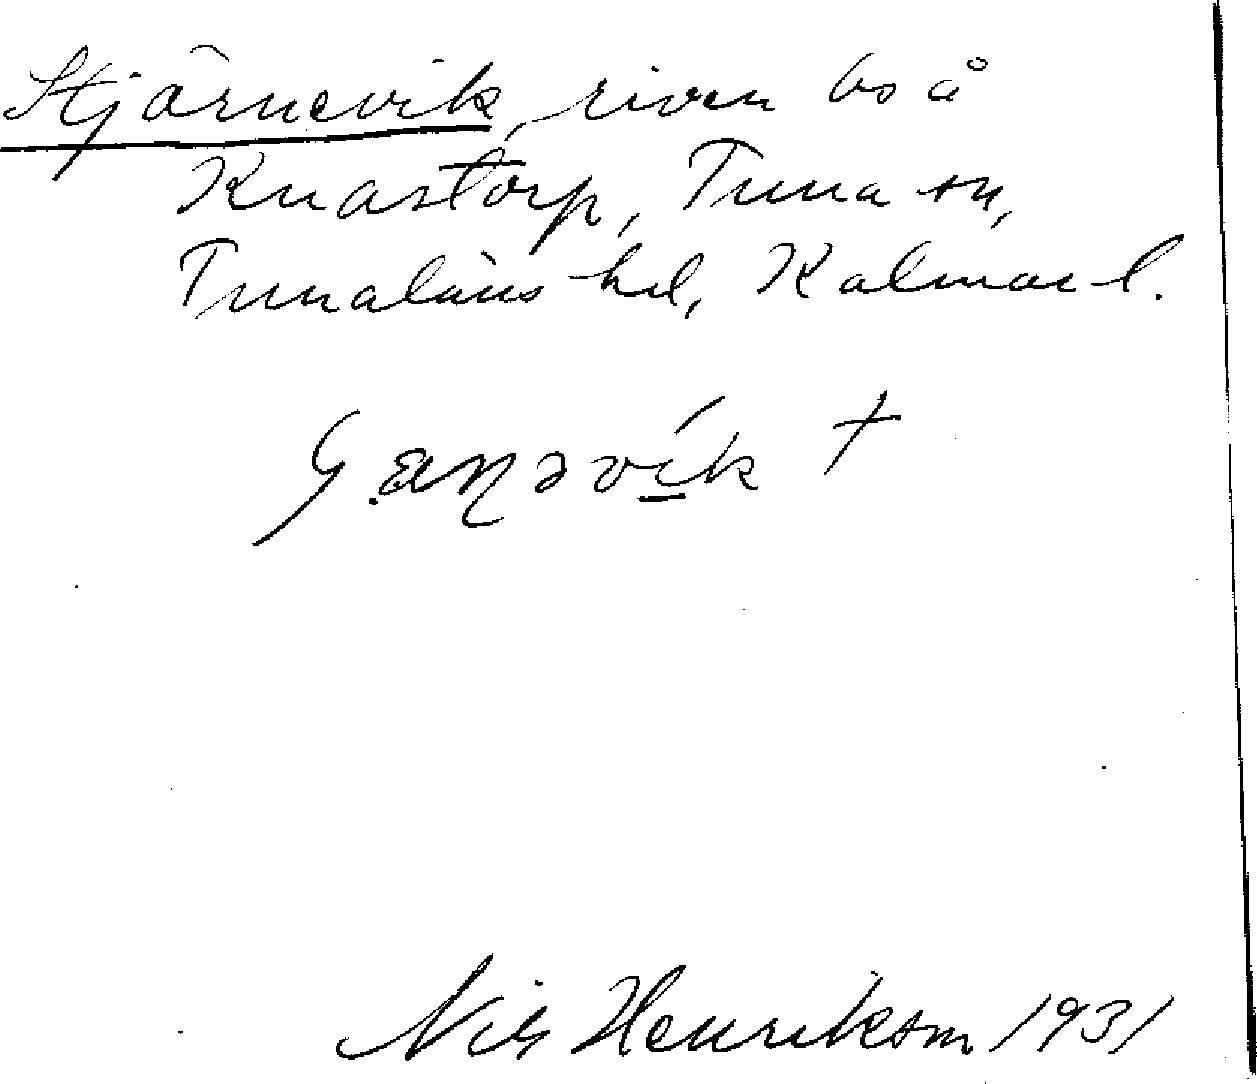 Stjärnevik, riven bs å
Knastorp, Tuna sn,
Tunaläns hd, Kalmar l.
Nils Henrikson 1931